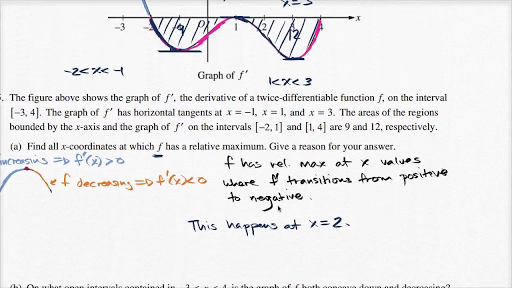 x=3
-3
-2
1
3
4
x
9
12
Graph of f'
-2<x<-1
1<x<3
The figure above shows the graph of f', the derivative of a twice-differentiable function f, on the interval
[-3, 4]. The graph of f' has horizontal tangents at x = -1, x = 1, and x = 3. The areas of the regions
bounded by the x-axis and the graph of f' on the intervals [-2, 1] and [1, 4] are 9 and 12, respectively.
(a) Find all x-coordinates at which f has a relative maximum. Give a reason for your answer.
increasing => f'(x)>0
f decreasing => f'(x)<0
f has rel. max at x values
where f' transitions from positive
to negative.
This happens at x=2.
(b) On what open intervals contained in -3 < x < 4 is the graph of f both concave down and decreasing?